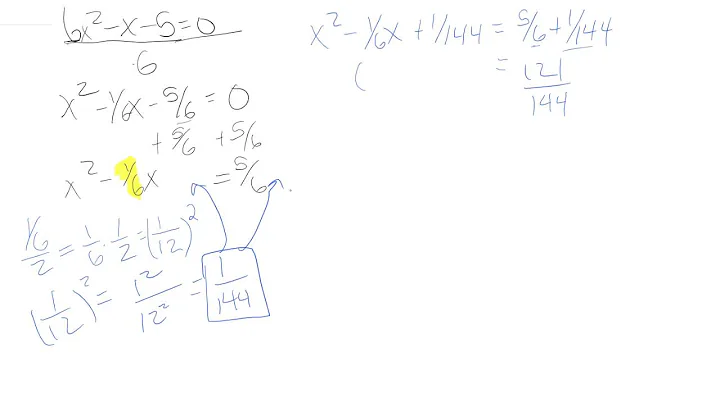 6x² - x - 5 = 0
6
x² - 1/6x - 5/6 = 0
+ 5/6 + 5/6
x² - 1/6x = 5/6
1/6 / 2 = 1/6 · 1/2 = (1/12)²
(1/12)² = 1²/12² = 1/144
x² - 1/6x + 1/144 = 5/6 + 1/144
( = 121/144